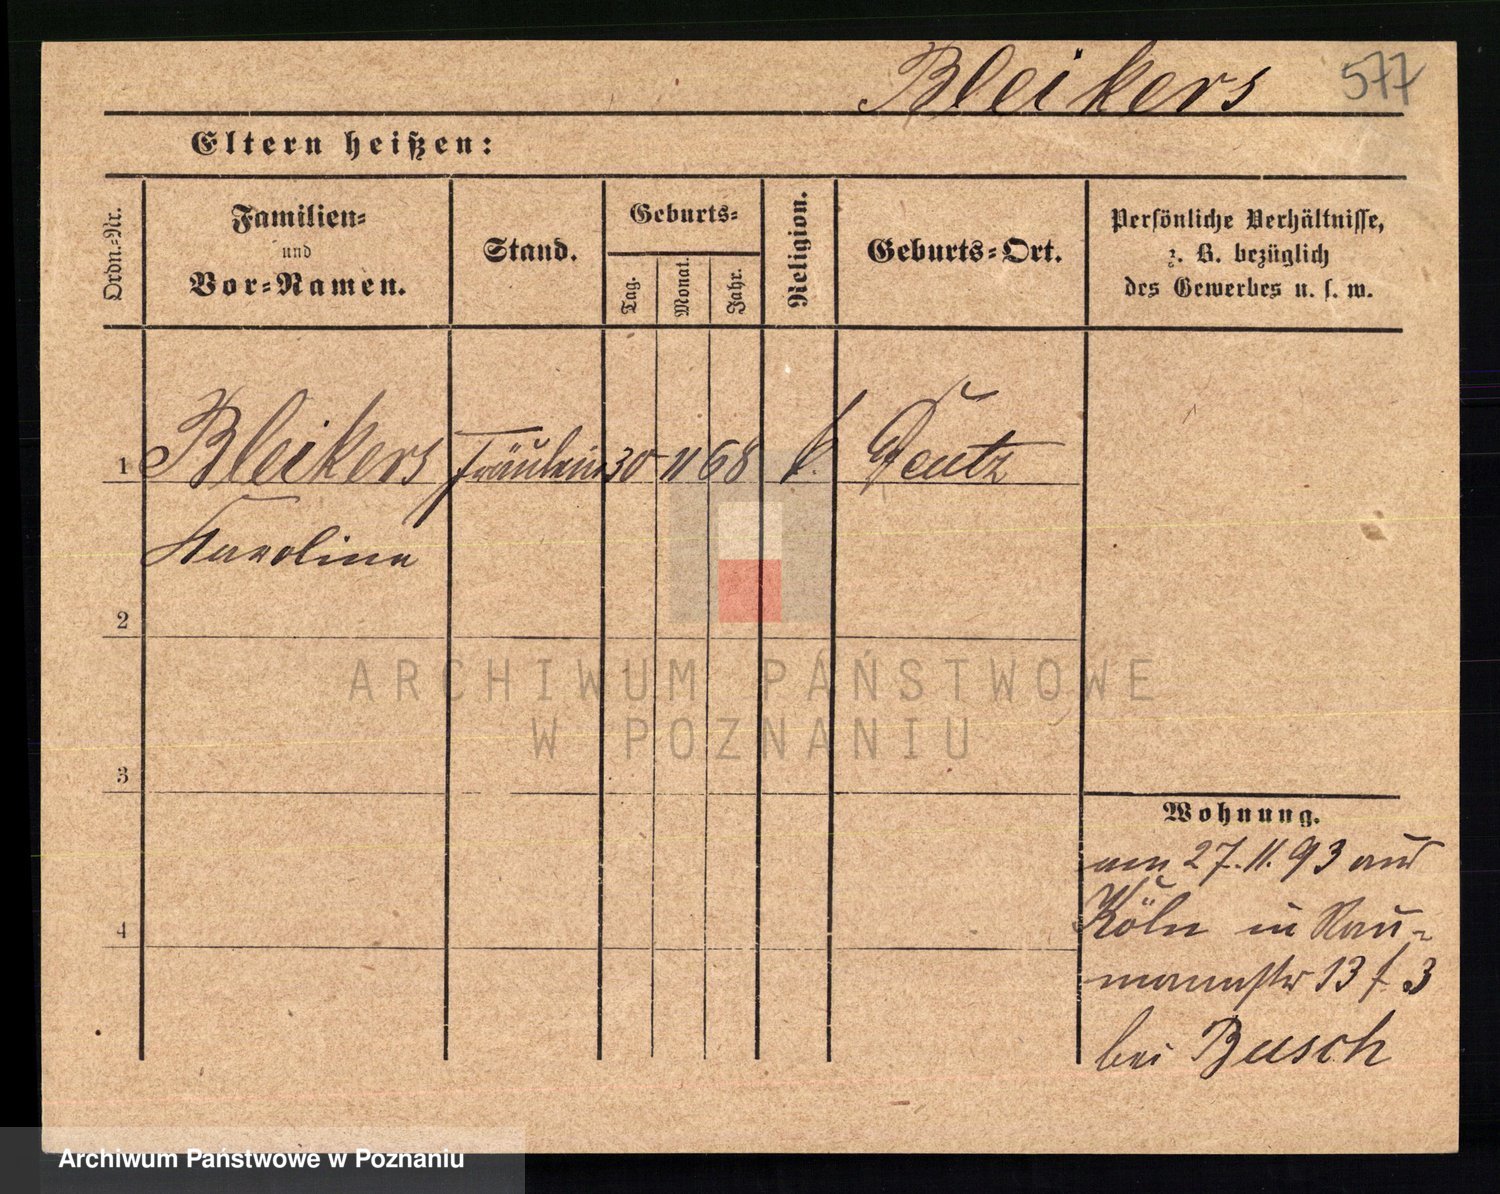 Bleikers 577
Eltern heißen:
Ordn.-Nr.
Familien-
und
Vor-Namen.
Stand.
Geburts-
Tag.
Monat.
Jahr.
Religion.
Geburts-Ort.
Persönliche Verhältnisse,
z. B. bezüglich
des Gewerbes u. s. w.
1 Bleikers Fräulein 30 11 68 k. Deutz
Karoline
2
ARCHIWUM PAŃSTWOWE
W POZNANIU
3
Wohnung.
am 27. 11. 93 aus
Köln in Nau-
mannstr 13 f 3
4
bei Busch
Archiwum Państwowe w Poznaniu